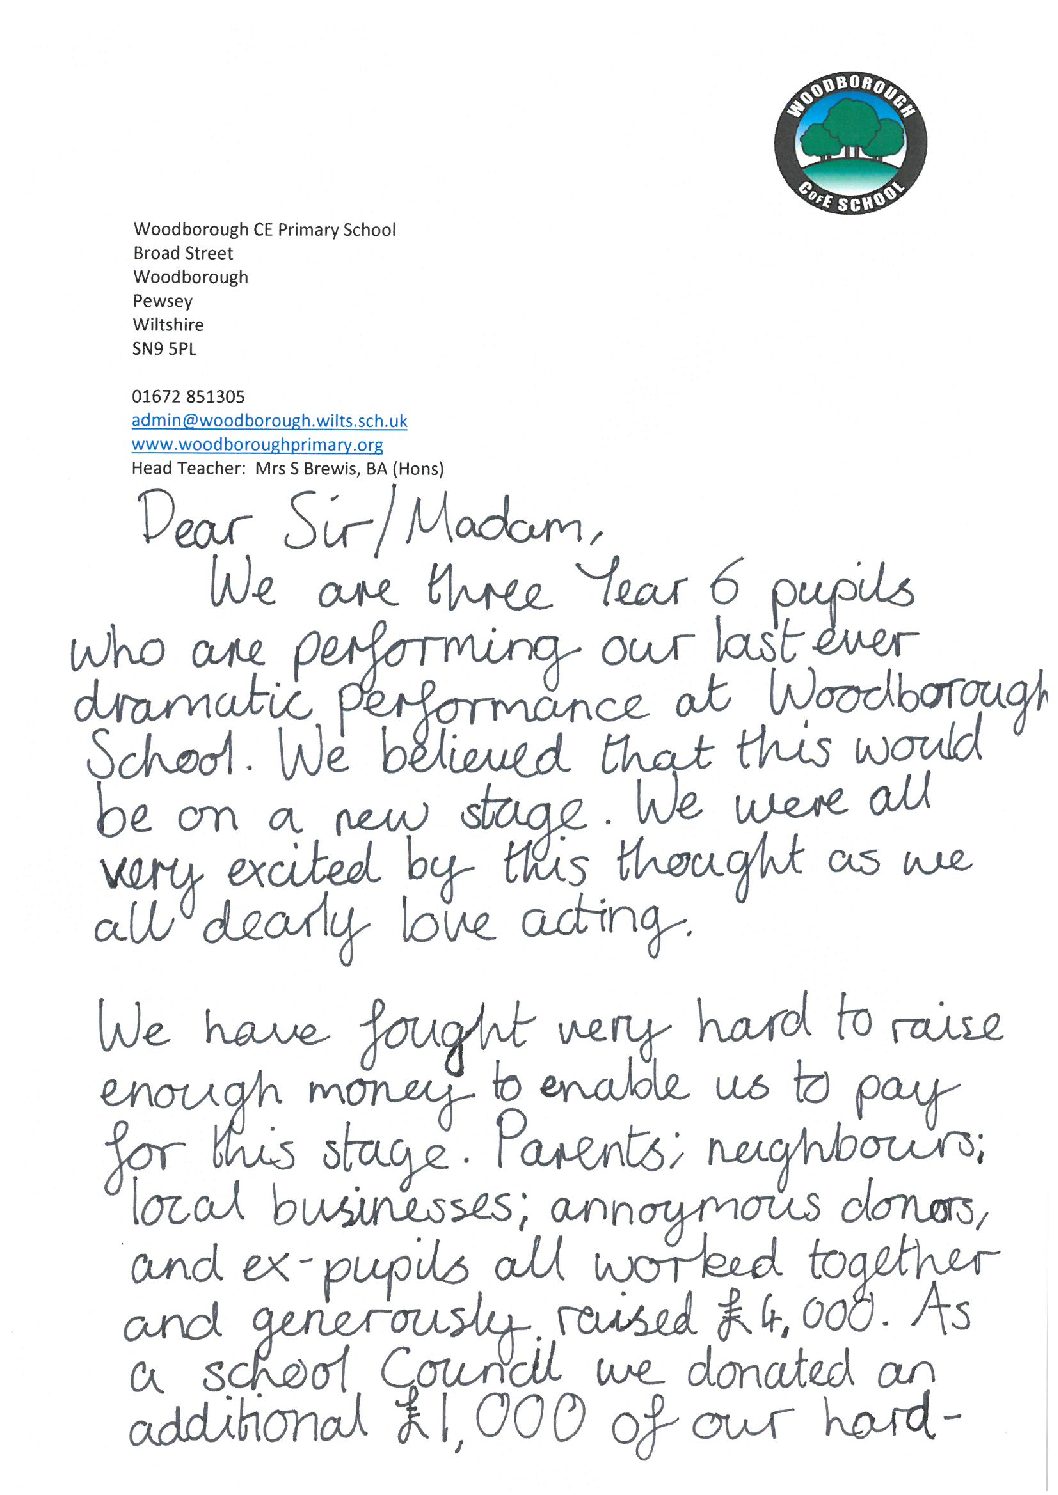 WOODBOROUGH
CofE SCHOOL
Woodborough CE Primary School
Broad Street
Woodborough
Pewsey
Wiltshire
SN9 5PL
01672 851305
admin@woodborough.wilts.sch.uk
www.woodboroughprimary.org
Head Teacher: Mrs S Brewis, BA (Hons)
Dear Sir/Madam,
We are three Year 6 pupils
who are performing our last ever
dramatic performance at Woodborough
School. We believed that this would
be on a new stage. We were all
very excited by this thought as we
all dearly love acting.
We have fought very hard to raise
enough money to enable us to pay
for this stage. Parents; neighbours;
local businesses; annoymous donors,
and ex-pupils all worked together
and generously raised £4,000. As
a school Council we donated an
additional £1,000 of our hard-